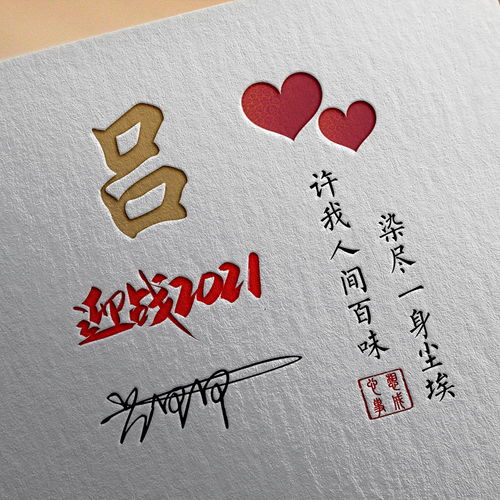 吕
迎战2021
许我人间百味
染尽一身尘埃
心想事成